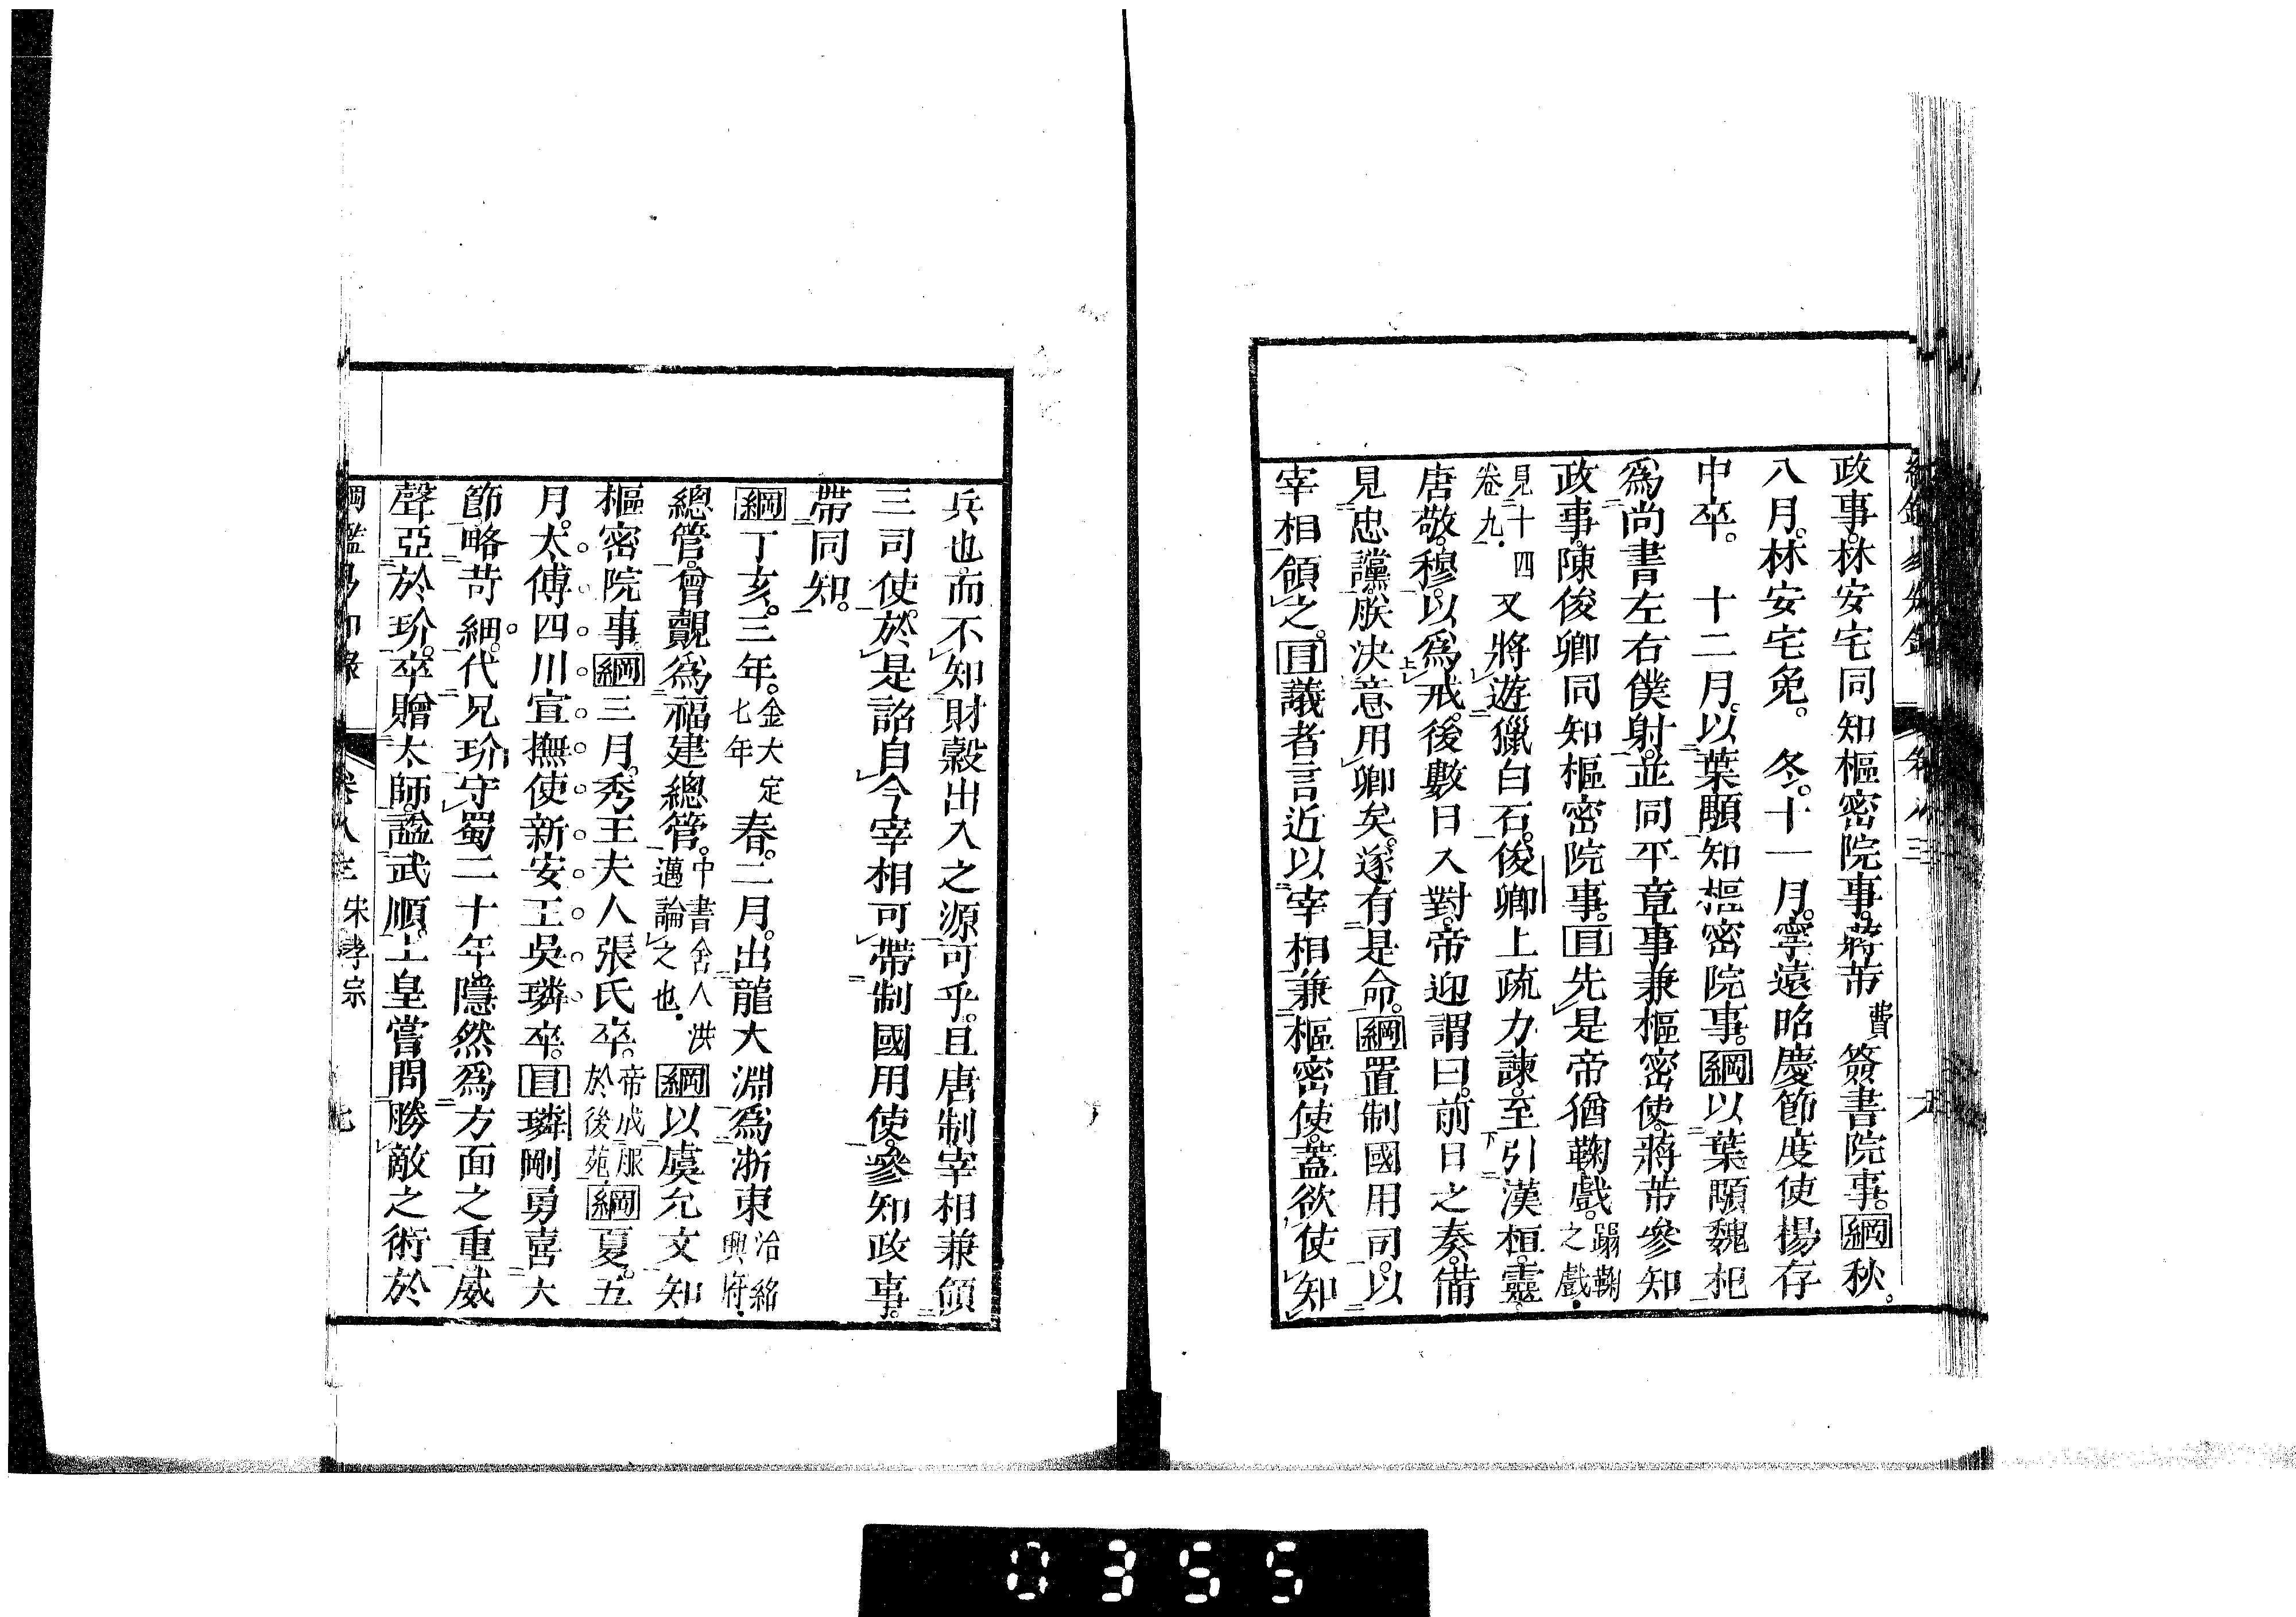 政事。林安宅同知樞密院事。蔣芾費簽書院事。綱秋。
八月。林安宅免。 冬。十一月。寧遠昭慶節度使楊存
中卒。 十二月。以葉顒知樞密院事。綱以葉顒魏杞
爲尚書左右僕射。並同平章事兼樞密使。蔣芾參知
政事。陳俊卿同知樞密院事。目先是帝猶鞠戲。蹋鞠之戲。
見十四卷九。又將遊獵白石。俊卿上疏力諫。至引漢桓。靈。
唐敬。穆。以爲戒。後數日入對。帝迎謂曰。前日之奏。備
見忠讜。朕決意用卿矣。遂有是命。綱置制國用司。以
宰相領之。目議者言近以宰相兼樞密使。蓋欲使知
兵也。而不知財穀出入之源可乎。且唐制宰相兼領
三司使。於是詔自今宰相可帶制國用使。參知政事。
帶同知。
綱丁亥。三年。金大定七年 春。二月。出龍大淵爲浙東治紹興府。
總管。曾覿爲福建總管。中書舍人洪邁論之也。綱以虞允文知
樞密院事。綱三月。秀王夫人張氏卒。帝成服於後苑。綱夏。五
月。太傅四川宣撫使新安王吳璘卒。目璘剛勇喜大
節。略苛細。代兄玠守蜀二十年。隱然爲方面之重。威
聲亞於玠。卒贈太師。謚武順。上皇嘗問勝敵之術於
綱鑑易知錄 卷八三 宋孝宗 七